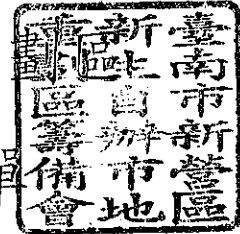 臺南市新營區
新上自辦市地
重劃區籌備會
劃區